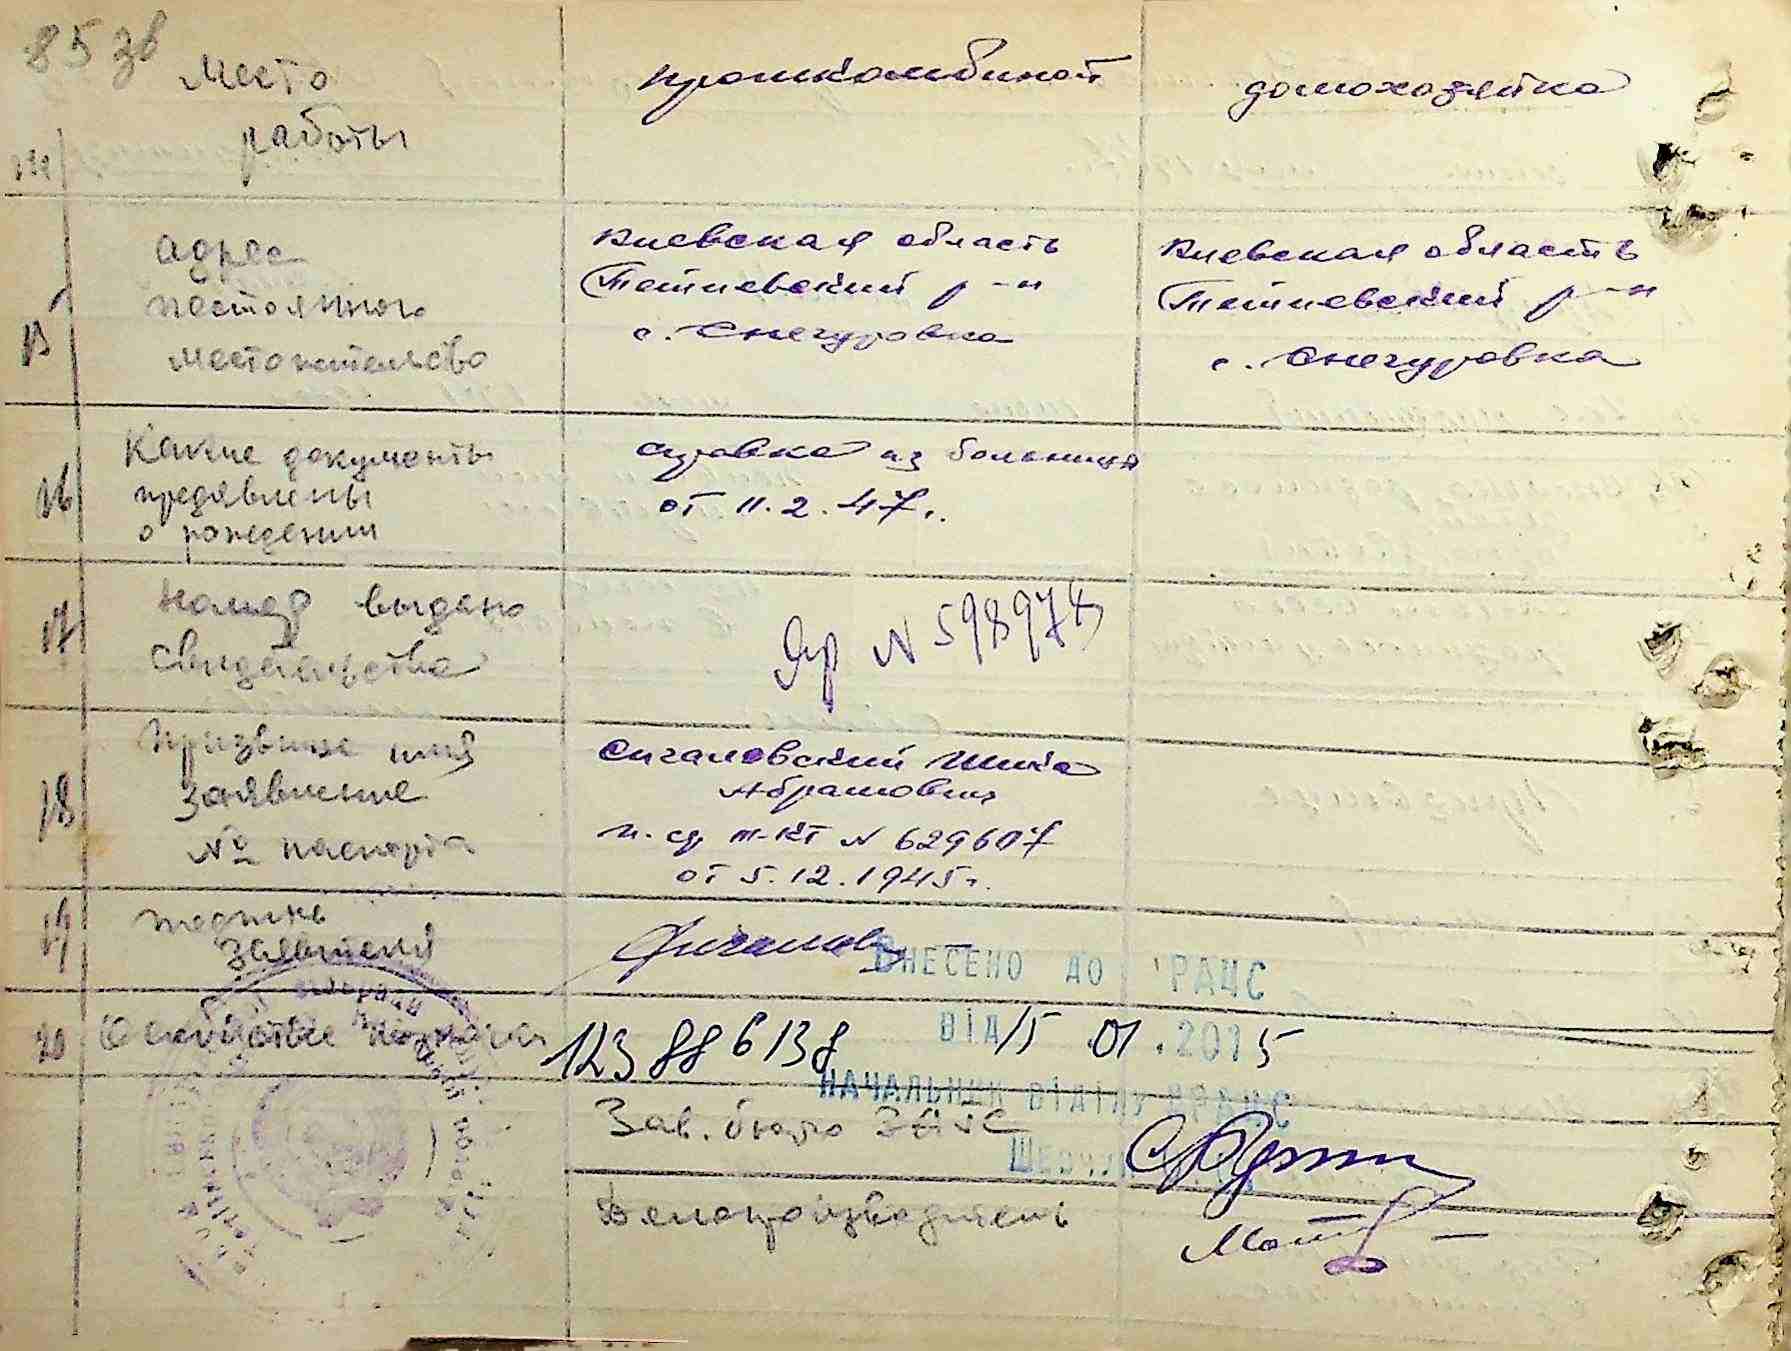 85 зв
Место
работы
промкомбинат
домохозяйка
14
15
адрес
постоянного
местожительства
Киевская область
Тетиевский р-н
с. Снегуровка
Киевская область
Тетиевский р-н
с. Снегуровка
16
Какие документы
предявлены
о рождении
справка из больницы
от 11.2.47г.
17
выдано
свидетельства
N 598974
18
призвище имя
заявление
№ паспорта
Сигаловский Шика
Абрамович
N 629607
от 5.12.1945г.
19
подпись
заявителя
20
123886138
ВНЕСЕНО ДО РАЦС
ВІД 15 .01 .2015
НАЧАЛЬНИК ВІДІЛУ РАЦС
Зав. бюро ЗАГС
Делопроизводитель